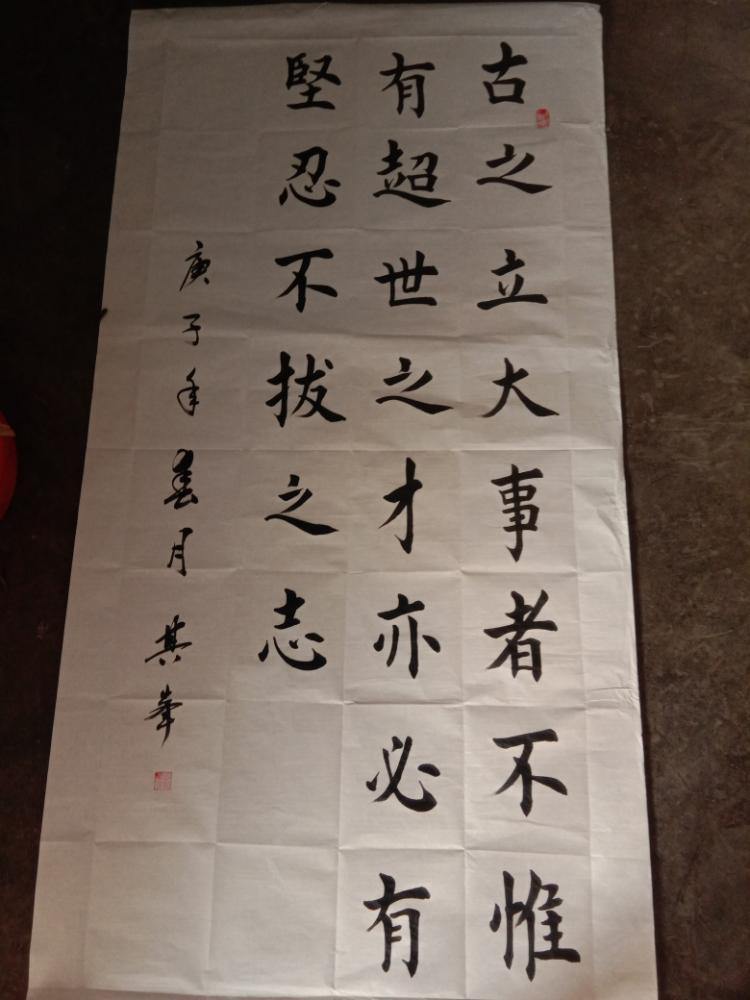 古之立大事者不惟
有超世之才亦必有
堅忍不拔之志
庚子年春月其峯